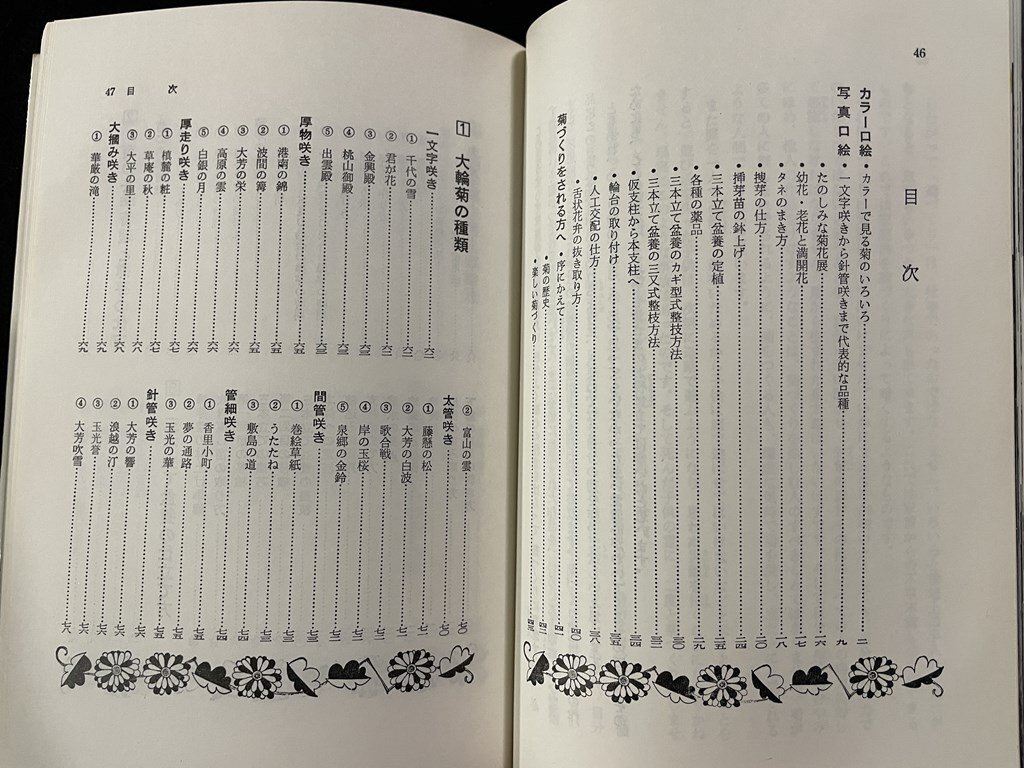 46
目次
カラー口絵・カラーで見る菊のいろいろ……二
写真口絵・一文字咲きから針管咲きまで代表的な品種……九
・たのしみな菊花展……一六
・幼花・老花と満開花……一七
・タネのまき方……一八
・挿芽の仕方……二〇
・挿芽苗の鉢上げ……二四
・三本立て盆養の定植……二五
・各種の薬品……二九
・三本立て盆養のカギ型式整技方法……三〇
・三本立て盆養の三叉式整枝方法……三二
・仮支柱から本支柱へ……三四
・輪台の取り付け……三五
・人工交配の仕方……三八
・舌状花弁の抜き取り方……四〇
菊づくりをされる方へ・序にかえて……四一
・菊の歴史……四二
・楽しい菊づくり……四三
47 目次
1 大輪菊の種類
一文字咲き……六二
①千代の雪……六二
②君が花……六二
③金興殿……六三
④桃山御殿……六三
⑤出雲殿……六三
厚物咲き……六五
①港南の錦……六五
②波間の篝……六五
③大芳の栄……六六
④高原の雲……六六
⑤白銀の月……六六
厚走り咲き……六七
①槙麓の粧……六七
②草庵の秋……六七
③大平の里……六八
大摑み咲き……六八
①華厳の滝……六九
②富山の雲……七〇
太管咲き……七〇
①藤懸の松……七一
②大芳の白波……七二
③歌合戦……七二
④岸の玉桜……七二
⑤泉郷の金鈴……七三
間管咲き……七三
①巻絵草紙……七三
②うたたね……七三
③敷島の道……七四
管細咲き……七四
①香里小町……七五
②夢の通路……七五
③玉光の華……七五
針管咲き……七六
①大芳の響……七六
②浪越の汀……七六
③玉光誉……七六
④大芳吹雪……七八